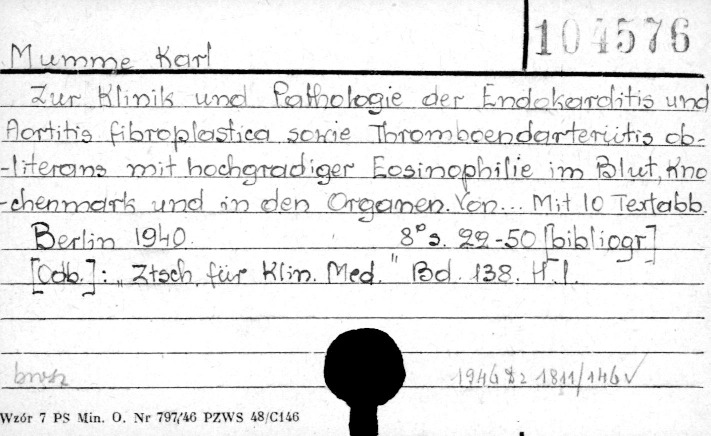 104576
Mumme Karl
Zur Klinik und Pathologie der Endokarditis und
Aortitis fibroplastica sowie Thromboendarteriitis ob-
-literans mit hochgradiger Eosinophilie im Blut, Kno
-chenmark und in den Organen. Von... Mit 10 Textabb.
Berlin 1940. 8° s. 22-50 [bibliogr]
[Odb.]: "Ztsch. für Klin. Med." Bd. 138. H.1.
brosz
1946 Dz 1811/146 √
Wzór 7 PS Min. O. Nr 797/46 PZWS 48/C146